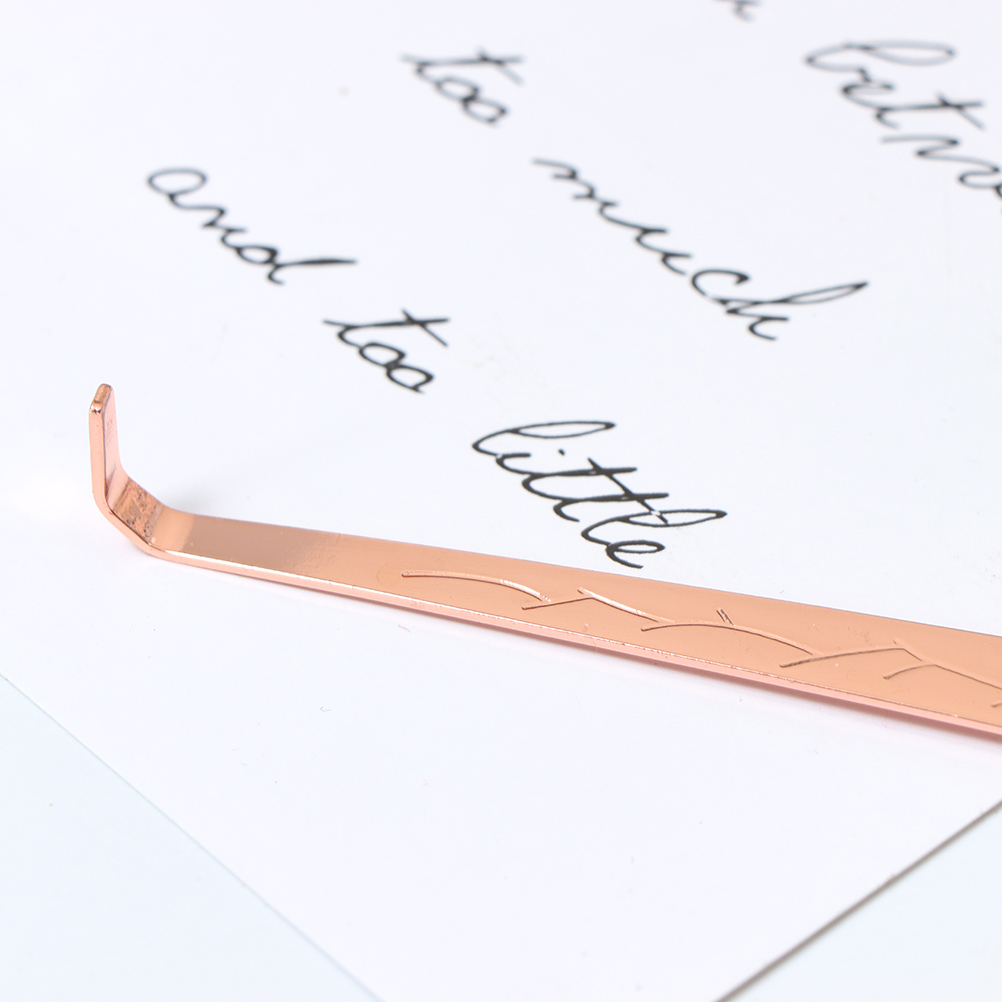 betwe
too much
and too little